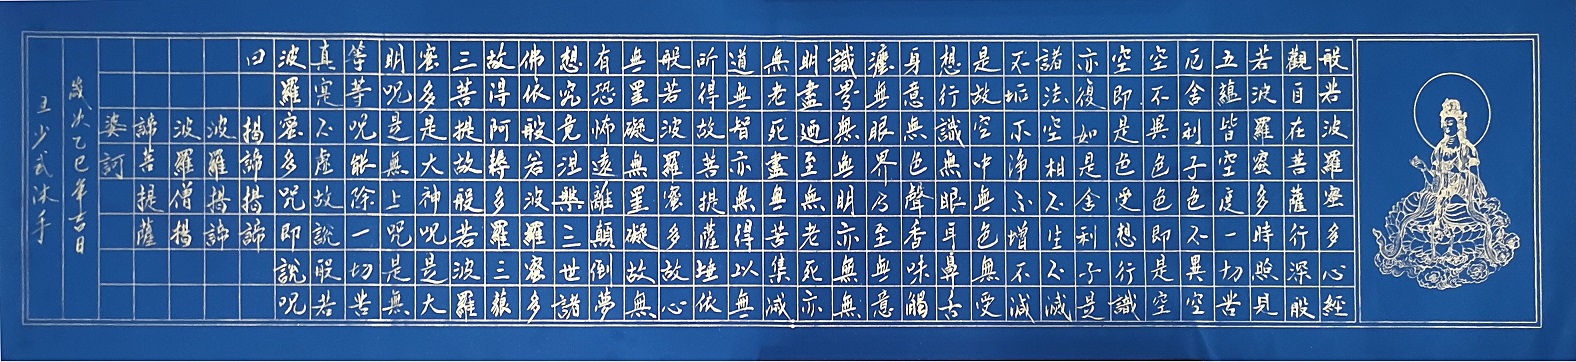 般若波羅蜜多心經
觀自在菩薩行深般
若波羅蜜多時照見
五蘊皆空度一切苦
厄舍利子色不異空
空不異色色即是空
空即是色受想行識
亦復如是舍利子是
諸法空相不生不滅
不垢不淨不增不減
是故空中無色無受
想行識無眼耳鼻舌
身意無色聲香味觸
灋無眼界乃至無意
識界無無明亦無無
明盡廼至無老死亦
無老死盡無苦集滅
道無智亦無得以無
所得故菩提薩埵依
般若波羅蜜多故心
無罣礙無罣礙故無
有恐怖遠離顛倒夢
想究竟涅槃三世諸
佛依般若波羅蜜多
故得阿耨多羅三藐
三菩提故般若波羅
蜜多是大神咒是大
明咒是無上咒是無
等等咒能除一切苦
真寔不虛故說般若
波羅蜜多咒即說咒
曰揭諦揭諦
波羅揭諦
波羅僧揭
諦菩提薩
婆訶
歲次乙巳年吉日
少武沐手